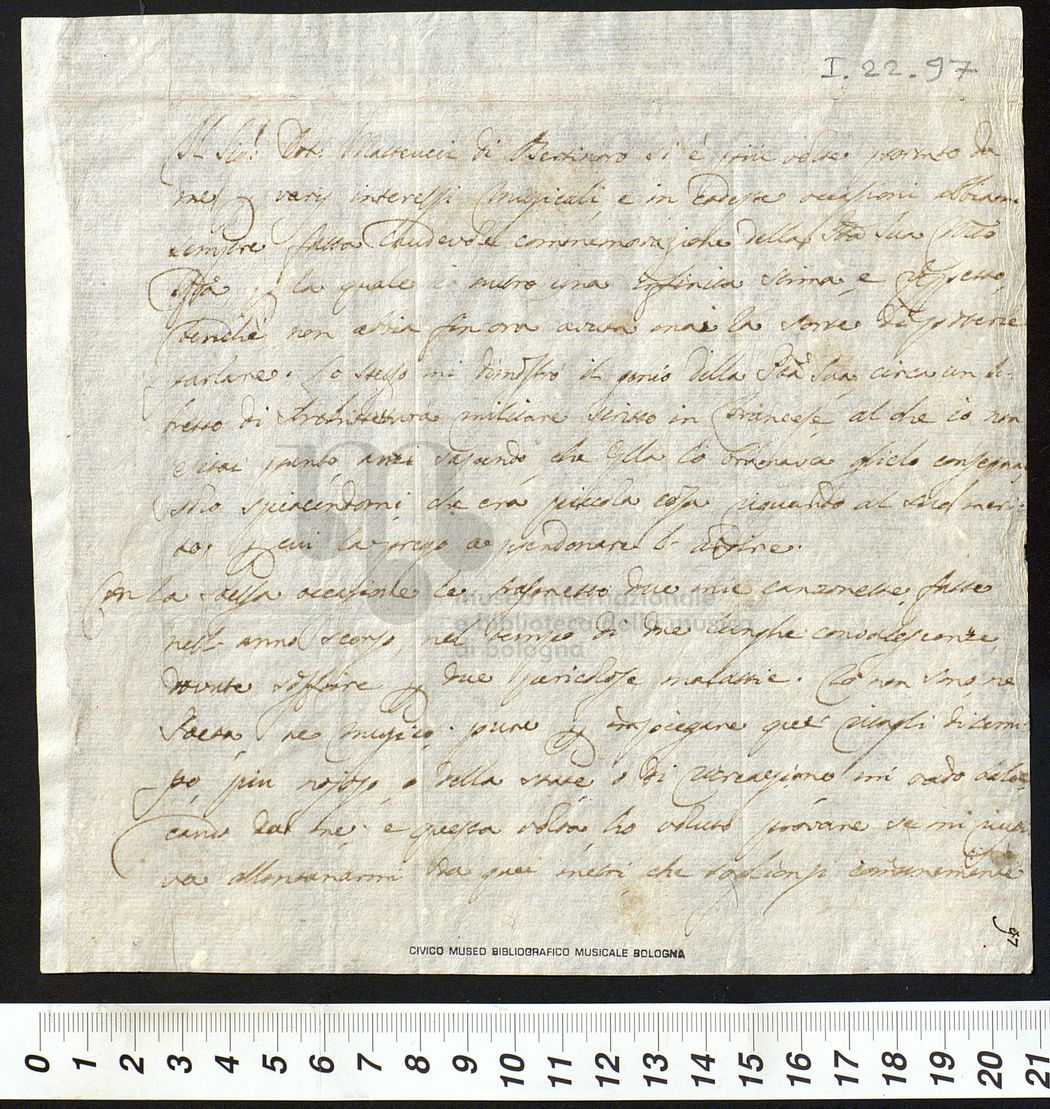 I. 22. 97
Il Sig.r Dot. Matteucci di Bertinoro si è più volte portato da
me p varij interessi Musicali, e in codeste occasioni abbiam
sempre fatta laudevole commemorazione della Sua
la quale io nutro una infinita stima, e rispetto,
benchè non abbia fin ora avuta mai la sorte di poterle
parlare. Lo stesso mi dimostrò il genio della Sua circa un li-
bretto di Architettura militare scritto in Francese, al che io non
esitai punto, anzi sapendo che Ella lo bramava glielo consegnai
spiacendomi che era piccola cosa riguardo al suo meri-
to; p cui la prego a perdonare l'ardire.
Con la stessa occasione le trasmetto due mie canzonette fatte
nell'anno scorso, nel tempo di due lunghe convalescenze
dovute soffrire p due pericolose malattie. Io non sono ne
Poeta, ne Musico: pure p impiegare quei ritagli di tem-
po, più nojoso, o della state, o di ricreazione mi vado
da me; e questa volta ho voluto provare se mi riusci-
va allontanarmi da quei metri che sogliono comunemente
97
museo internazionale
e biblioteca della musica
di bologna
CIVICO MUSEO BIBLIOGRAFICO MUSICALE BOLOGNA
0 1 2 3 4 5 6 7 8 9 10 11 12 13 14 15 16 17 18 19 20 21